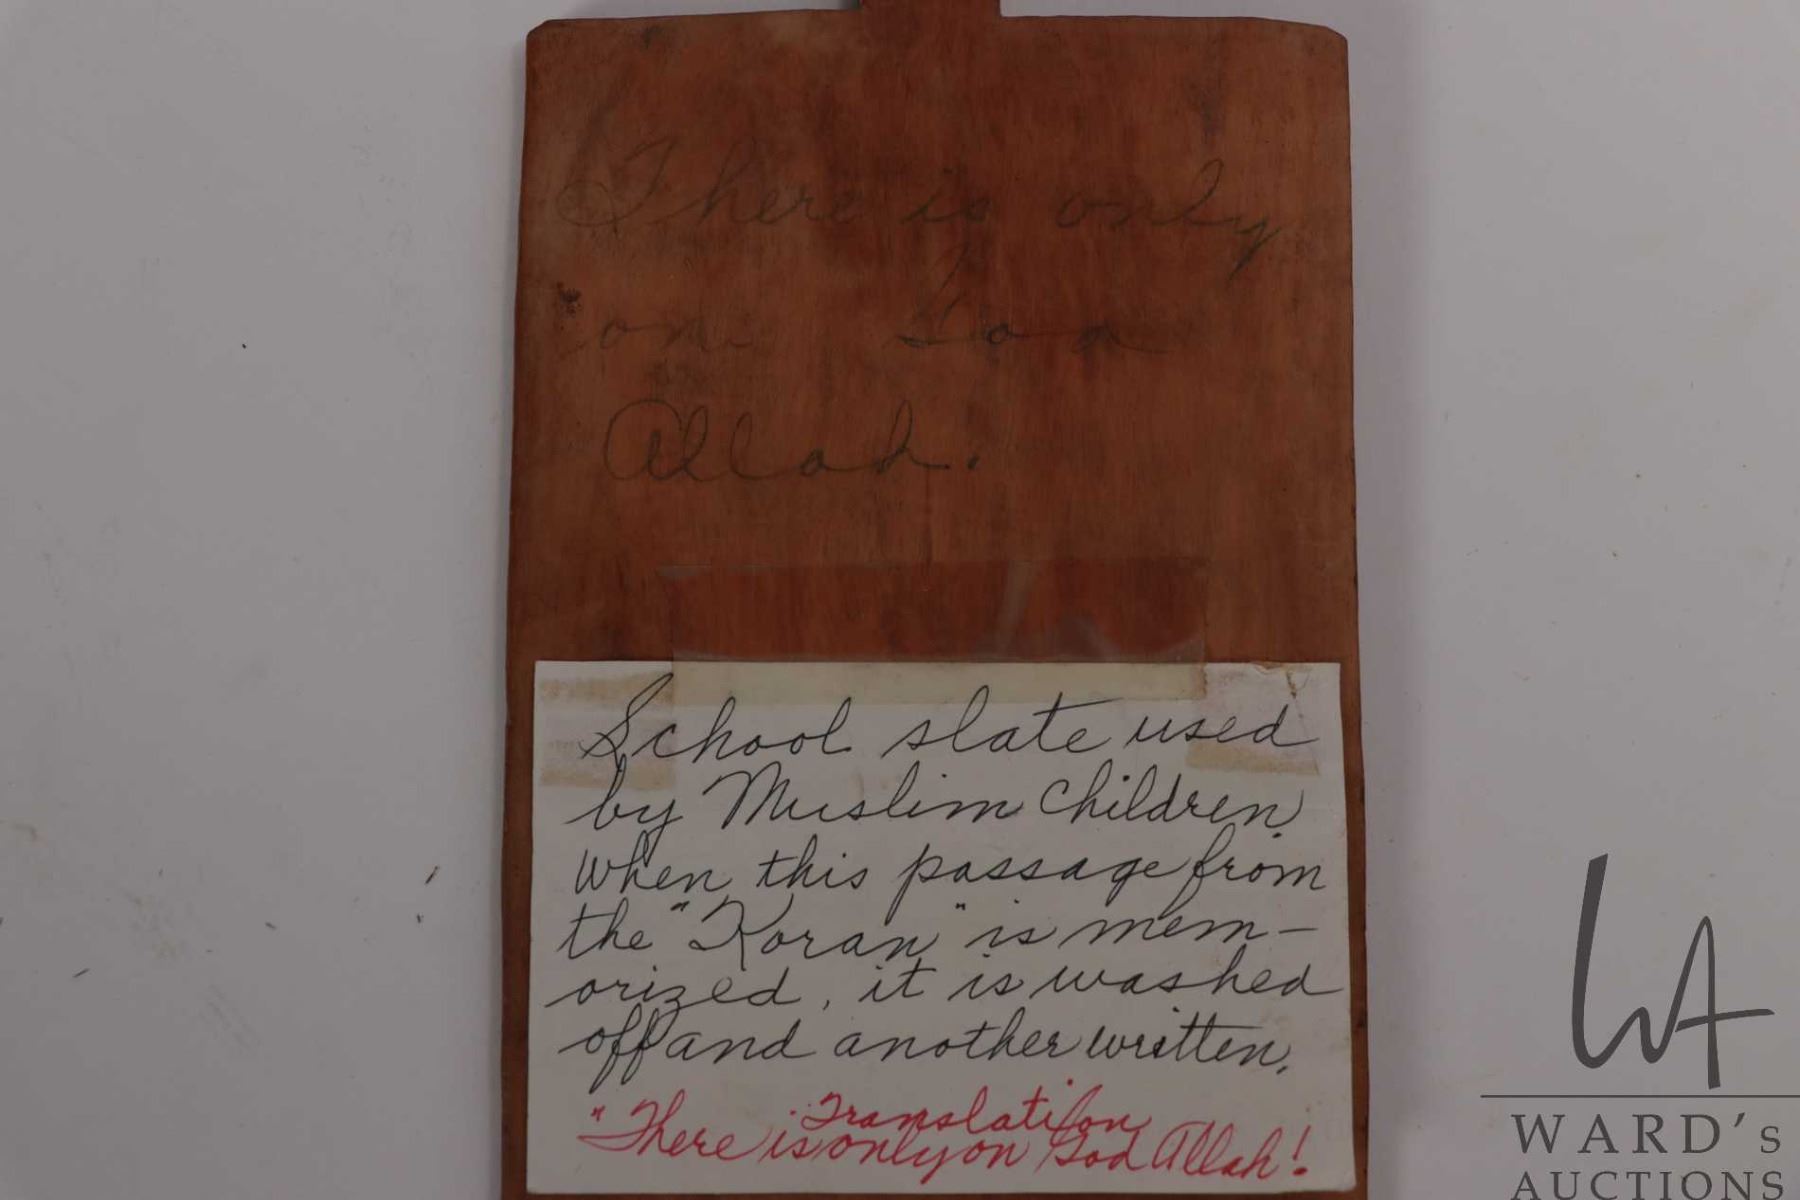 There is only
on God
Allah.
School slate used
by Muslim Children.
When this passage from
the "Koran" is mem-
orized, it is washed
off and another written.
Translation
"There is only on God Allah!
WA
WARD's
AUCTIONS